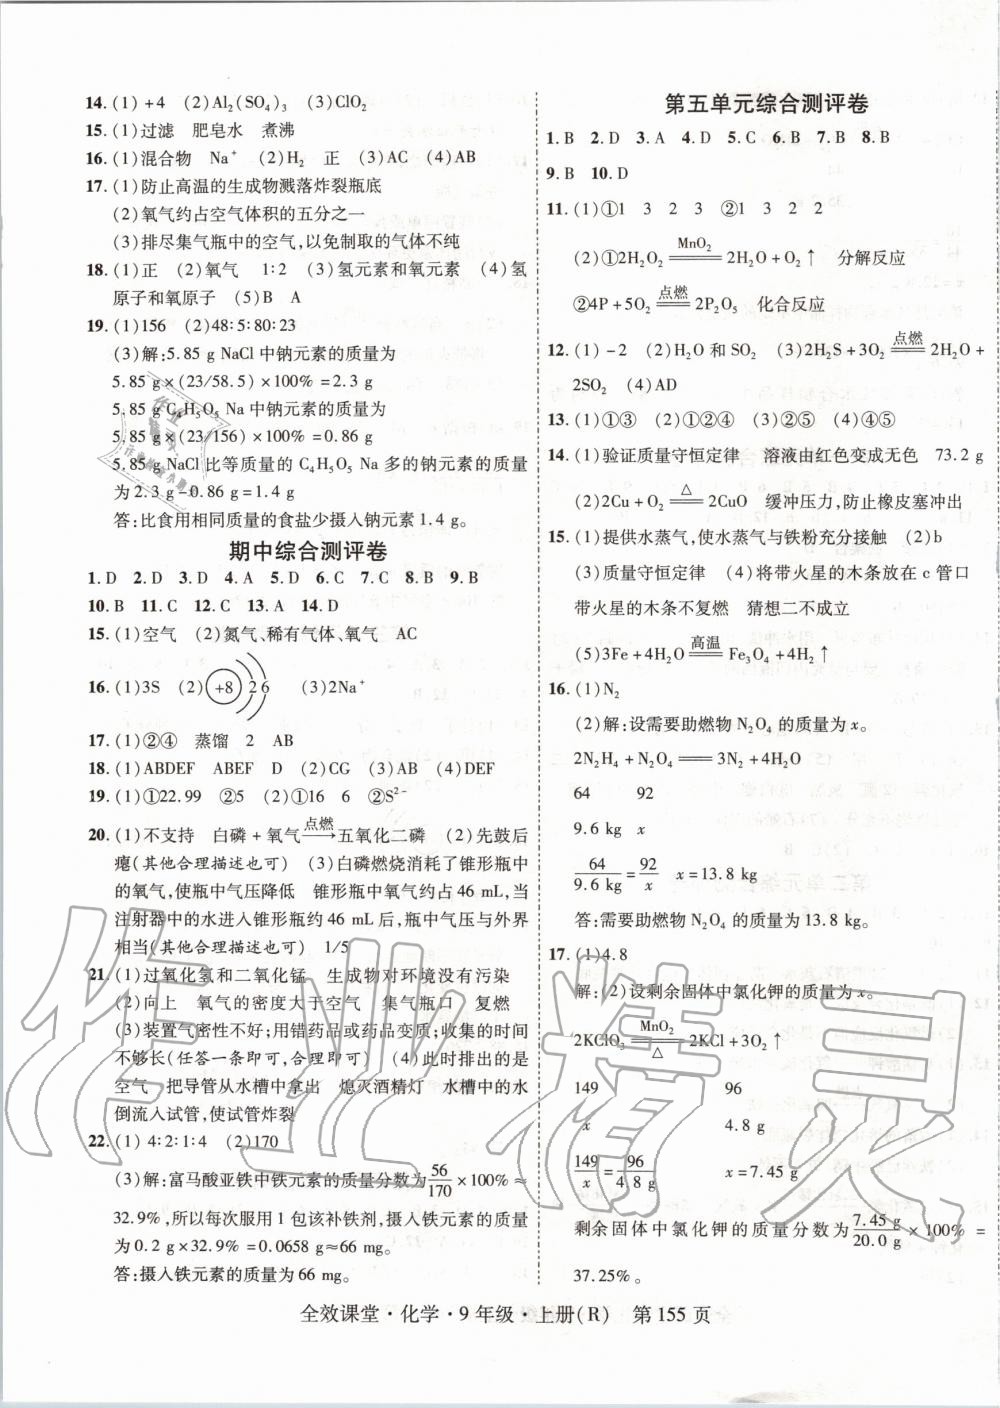 14. (1)+4 (2)Al₂(SO₄)₃ (3)ClO₂
15. (1)过滤 肥皂水 煮沸
16. (1)混合物 Na⁺ (2)H₂ 正 (3)AC (4)AB
17. (1)防止高温的生成物溅落炸裂瓶底
(2)氧气约占空气体积的五分之一
(3)排尽集气瓶中的空气,以免制取的气体不纯
18. (1)正 (2)氧气 1∶2 (3)氢元素和氧元素 (4)氢
原子和氧原子 (5)B A
19. (1)156 (2)48∶5∶80∶23
(3)解:5.85 g NaCl中钠元素的质量为
5.85 g×(23/58.5)×100%=2.3 g
5.85 g C₄H₅O₅ Na中钠元素的质量为
5.85 g×(23/156)×100%=0.86 g
5.85 g NaCl比等质量的 C₄H₅O₅ Na多的钠元素的质量
为 2.3 g-0.86 g=1.4 g
答:比食用相同质量的食盐少摄入钠元素 1.4 g。
期中综合测评卷
1. D 2. D 3. D 4. A 5. D 6. C 7. C 8. B 9. B
10. B 11. C 12. C 13. A 14. D
15. (1)空气 (2)氮气、稀有气体、氧气 AC
16. (1)3S (2) +8 2 6 (3)2Na⁺
17. (1)②④ 蒸馏 2 AB
18. (1)ABDEF ABEF D (2)CG (3)AB (4)DEF
19. (1)①22.99 ②5 (2)①16 6 ②S²⁻
20. (1)不支持 白磷+氧气 点燃→ 五氧化二磷 (2)先鼓后
瘪(其他合理描述也可) (3)白磷燃烧消耗了锥形瓶中
的氧气,使瓶中气压降低 锥形瓶中氧气约占 46 mL,当
注射器中的水进入锥形瓶约 46 mL后,瓶中气压与外界
相当(其他合理描述也可) 1/5
21. (1)过氧化氢和二氧化锰 生成物对环境没有污染
(2)向上 氧气的密度大于空气 集气瓶口 复燃
(3)装置气密性不好;用错药品或药品变质;收集的时间
不够长(任答一条即可,合理即可) (4)此时排出的是
空气 把导管从水槽中拿出 熄灭酒精灯 水槽中的水
倒流入试管,使试管炸裂
22. (1)4∶2∶1∶4 (2)170
(3)解:富马酸亚铁中铁元素的质量分数为 56/170 ×100%≈
32.9%,所以每次服用 1 包该补铁剂,摄入铁元素的质量
为 0.2 g×32.9%=0.0658 g≈66 mg。
答:摄入铁元素的质量为 66 mg。
第五单元综合测评卷
1. B 2. D 3. A 4. D 5. C 6. B 7. B 8. B
9. B 10. D
11. (1)①1 3 2 3 ②1 3 2 2
(2)①2H₂O₂ =MnO₂= 2H₂O+O₂↑ 分解反应
②4P+5O₂ =点燃= 2P₂O₅ 化合反应
12. (1)-2 (2)H₂O 和 SO₂ (3)2H₂S+3O₂ =点燃= 2H₂O+
2SO₂ (4)AD
13. (1)①③ (2)①②④ (3)②⑤ (4)④⑤
14. (1)验证质量守恒定律 溶液由红色变成无色 73.2 g
(2)2Cu+O₂ =△= 2CuO 缓冲压力,防止橡皮塞冲出
15. (1)提供水蒸气,使水蒸气与铁粉充分接触 (2)b
(3)质量守恒定律 (4)将带火星的木条放在 c 管口
带火星的木条不复燃 猜想二不成立
(5)3Fe+4H₂O =高温= Fe₃O₄+4H₂↑
16. (1)N₂
(2)解:设需要助燃物 N₂O₄ 的质量为 x。
2N₂H₄+N₂O₄ = 3N₂+4H₂O
64 92
9.6 kg x
64/9.6 kg = 92/x x=13.8 kg
答:需要助燃物 N₂O₄ 的质量为 13.8 kg。
17. (1)4.8
解:(2)设剩余固体中氯化钾的质量为 x。
2KClO₃ =MnO₂/△= 2KCl+3O₂↑
149 96
x 4.8 g
149/x = 96/4.8 g x=7.45 g
剩余固体中氯化钾的质量分数为 7.45 g/20.0 g ×100%=
37.25%。
全效课堂·化学·9 年级·上册(R) 第 155 页
作业精灵